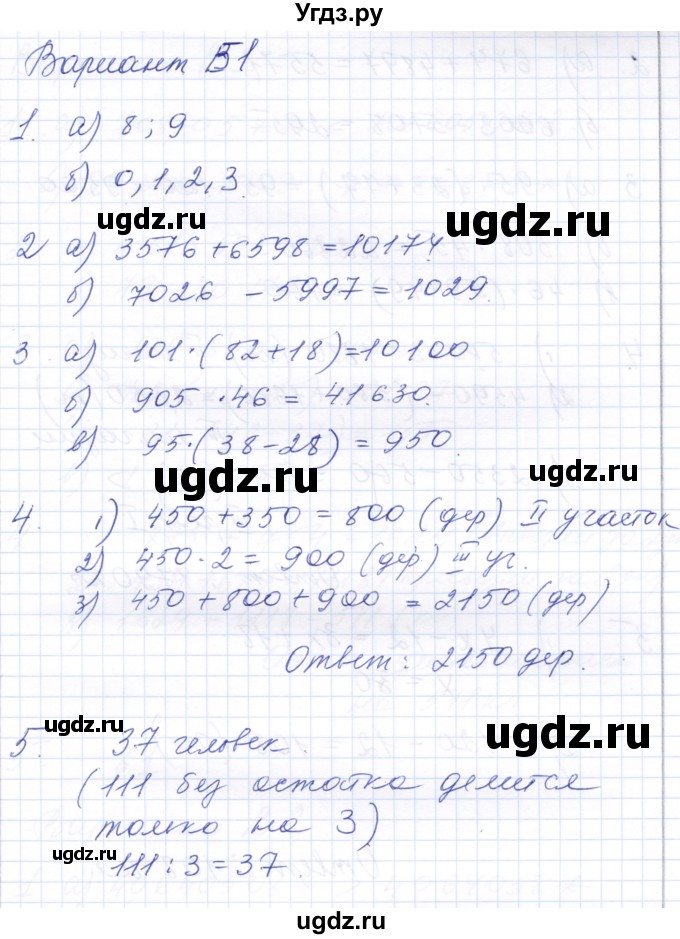 Угдз.ру
Вариант Б1
1. а) 8; 9
б) 0, 1, 2, 3.
ugdz.ru ugdz.ru
2 а) 3576 + 6598 = 10174.
б) 7026 - 5997 = 1029.
3 а) 101·(82+18)=10100
б) 905 ·46 = 41630.
в) 95·(38-28) = 950.
ugdz.ru ugdz.ru
4. 1) 450 + 350 = 800 (дер) II участок
2) 450·2 = 900 (дер) III уч.
3) 450 + 800 + 900 = 2150 (дер)
Ответ: 2150 дер.
ugdz.ru ugdz.ru
5. 37 человек.
(111 без остатка делится
только на 3)
ugdz.ru
111 : 3 = 37.
ugdz.ru